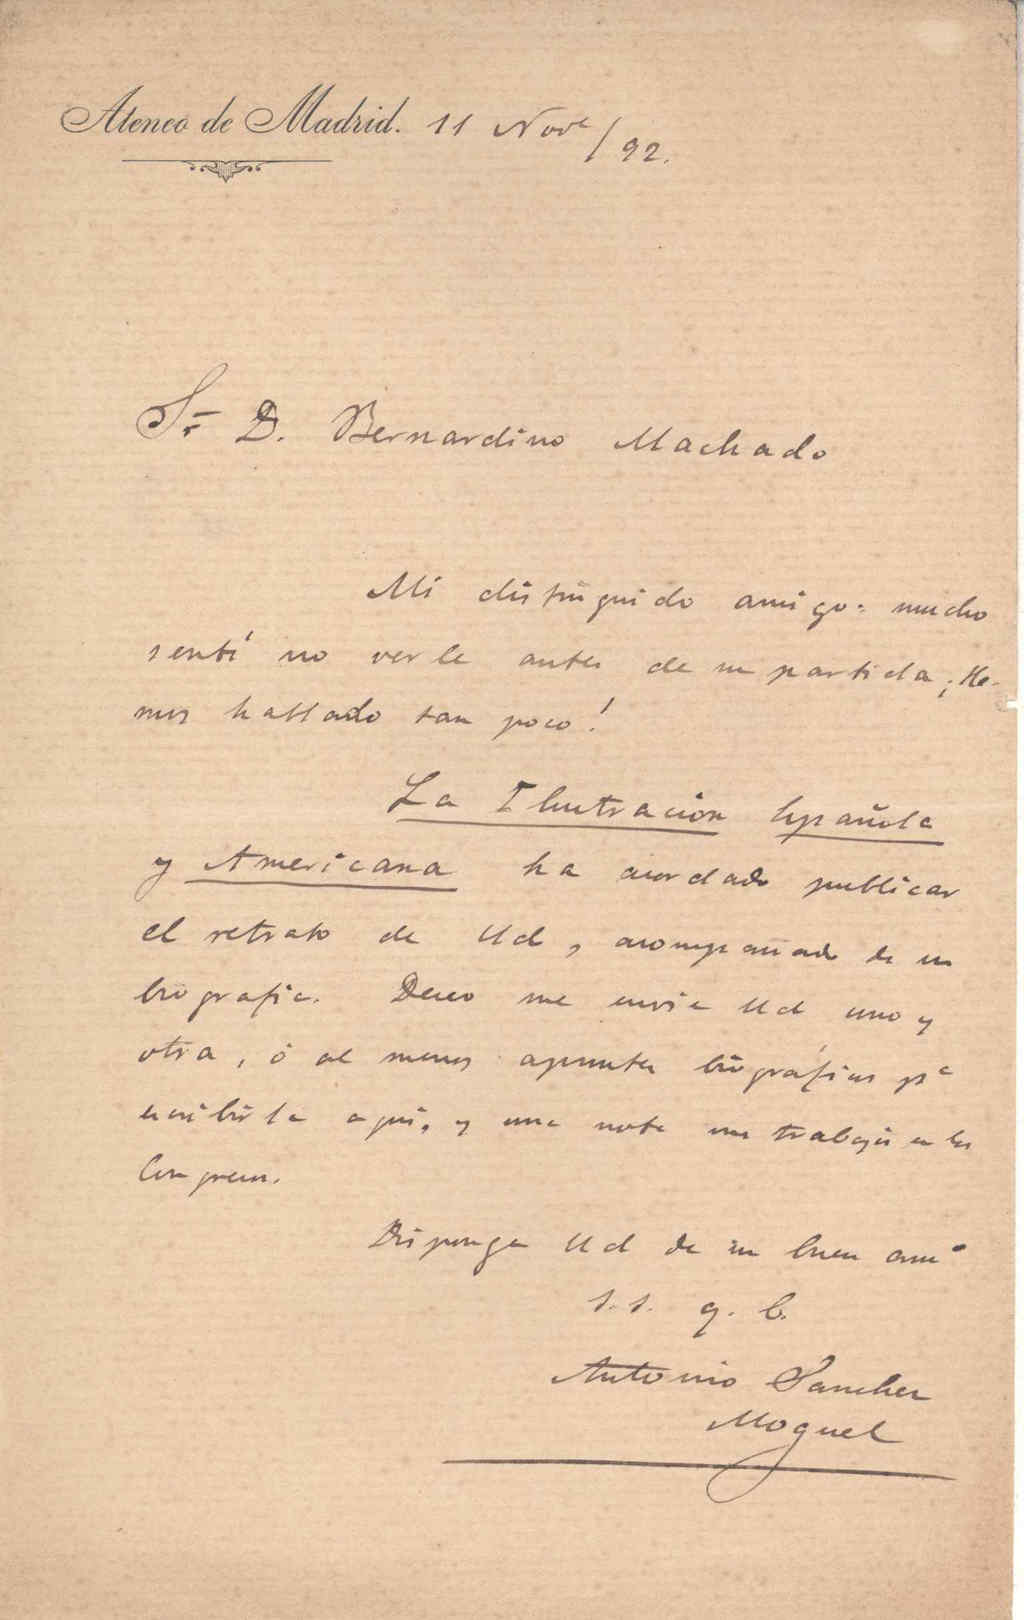 Ateneo de Madrid. 11 Nov.e /92.
Sr. D. Bernardino Machado
Mi distinguido amigo: mucho
sentí no verle antes de su partida ¡He-
mos hablado tan poco!
La Ilustración Española
y Americana ha acordado publicar
el retrato de Ud, acompañado de su
biografia. Deseo me envie Ud uno y
otra, ó al menos apuntes biográficos pa
escribirla aqui, y una nota sus trabajos en los
Congresos.
Disponga Ud de su buen amo
s.s. q. b.
Antonio Sanchez
Moguel